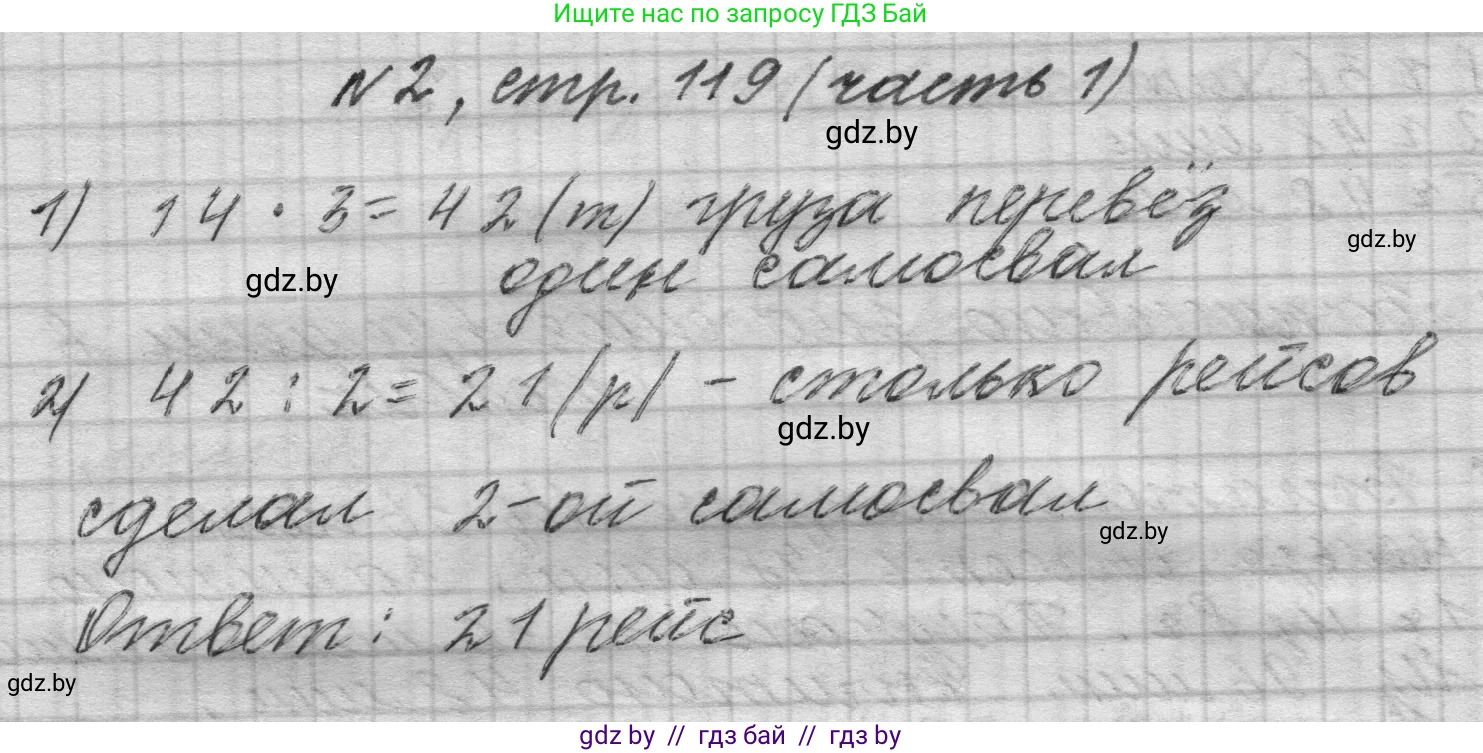 Ищите нас по запросу ГДЗ Бай
N2, стр. 119 (часть 1)
gdz.by
1) 14 · 3 = 42 (т) груза перевёз
gdz.by
один самосвал
gdz.by
2) 42 : 2 = 21 (р) - столько рейсов
gdz.by
сделал 2-ой самосвал
gdz.by
Ответ: 21 рейс
gdz.by
gdz by // гдз бай // гдз by